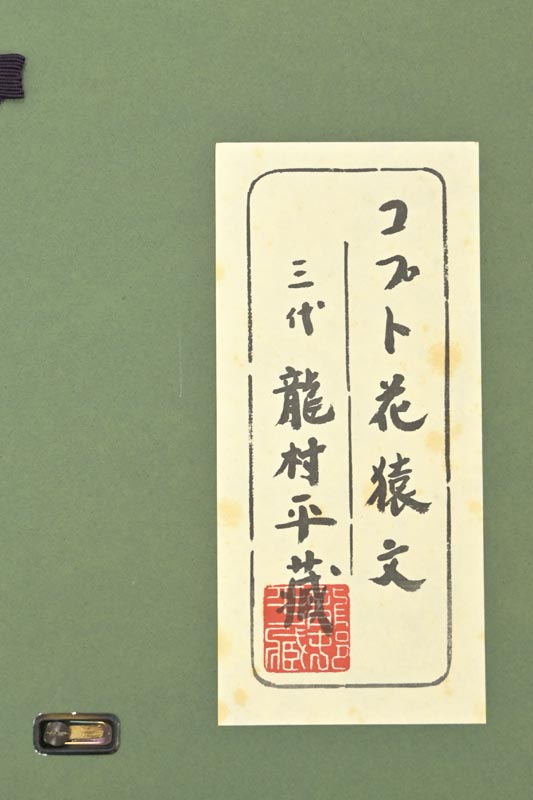 コプト花猿文
三代 龍村平藏